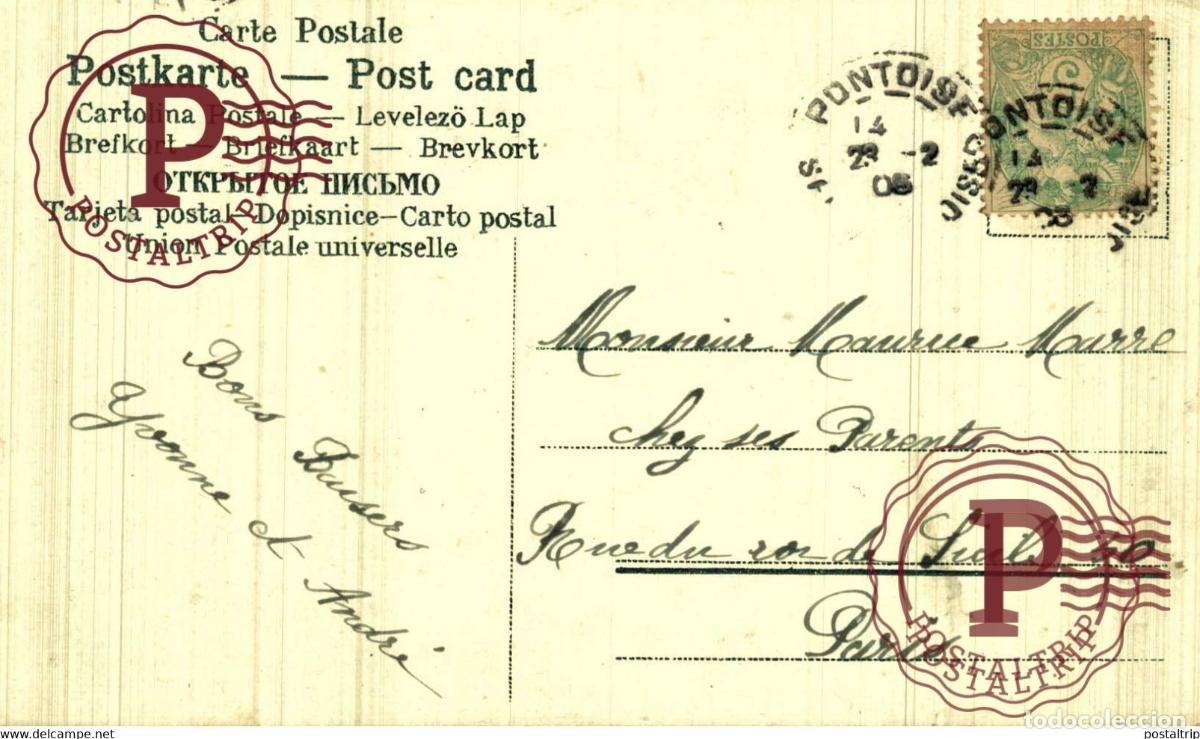 Carte Postale
Postkarte — Post card
Cartolina Postale — Levelezö Lap
Brefkort — Briefkaart — Brevkort
ОТКРЫТОЕ ПИСЬМО
Tarjeta postal–Dopisnice–Carto postal
Union Postale universelle
POSTES
PONTOISE
14
29 -2
06
PONTOISE
14
2
Monsieur Maurice Marre
chez ses Parents
Rue du roi de Sicile
Paris
Bons Baisers
Yvonne et André
P
POSTALTRIP
P
POSTALTRIP
POSTALTRIP
todocoleccion
www.delcampe.net
postaltrip